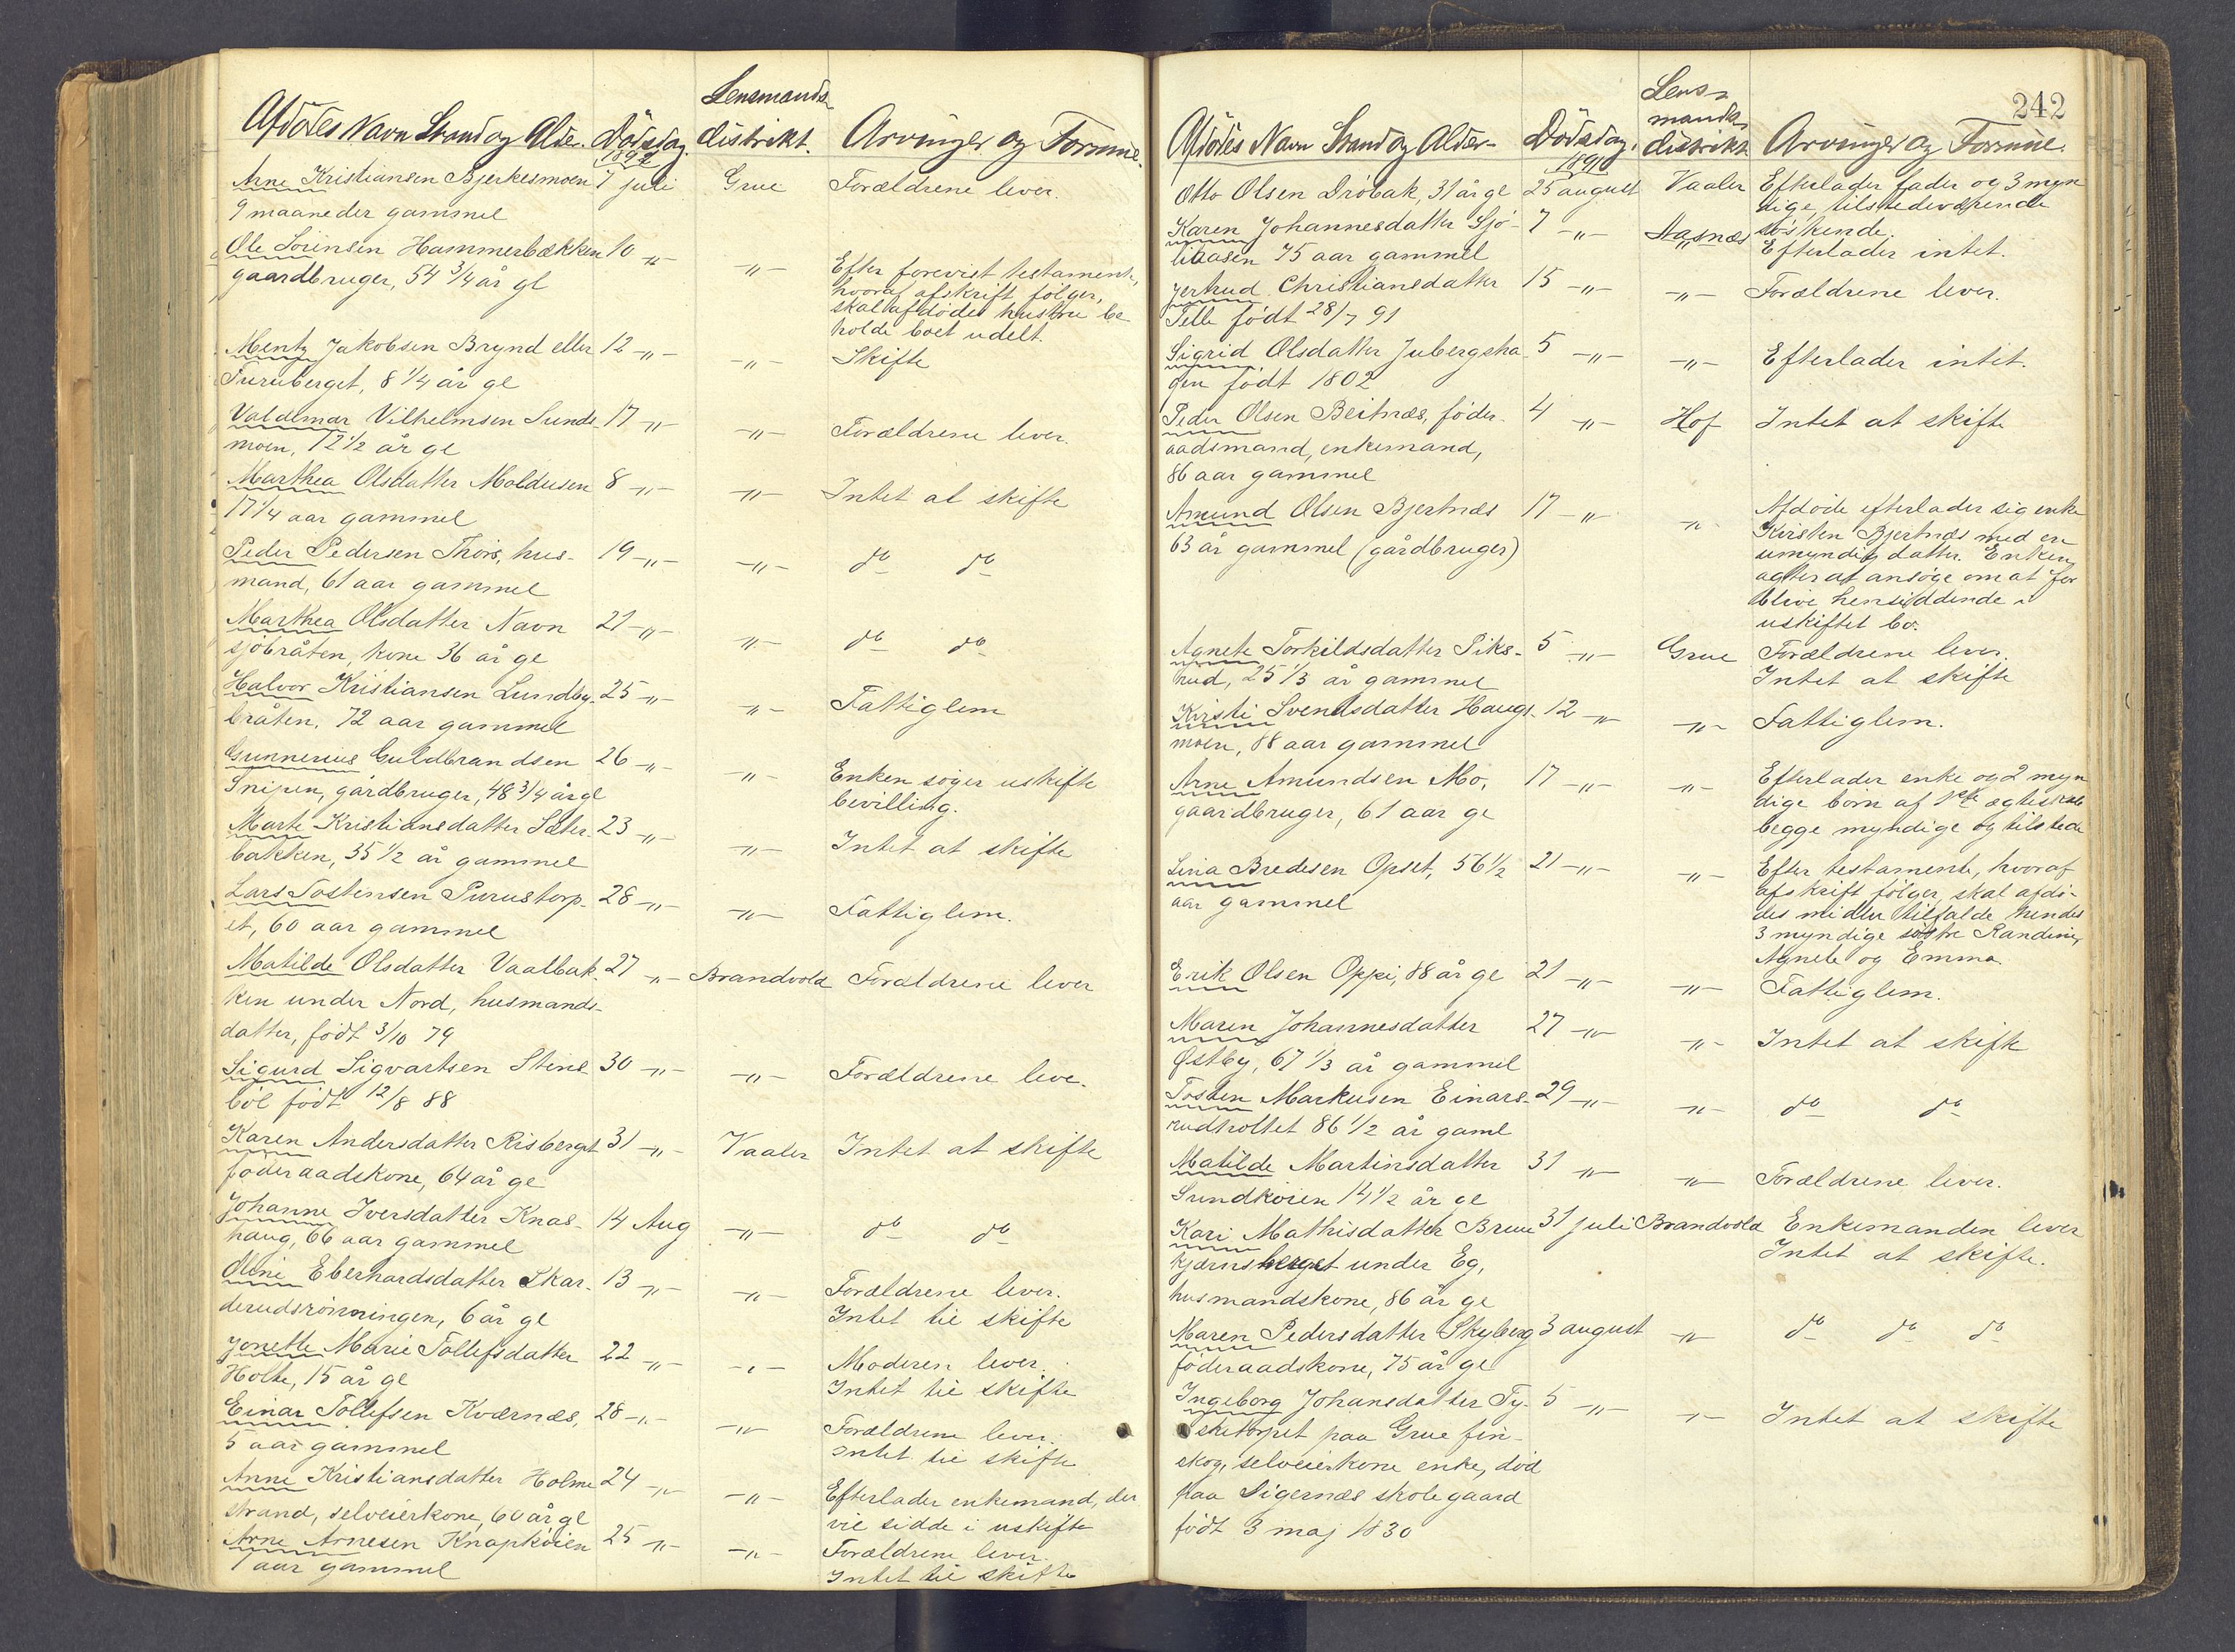 Lensmands-
Afdødes Navn Stand og Alder. Dødsdag. distrikt. Arvinger og Formue.
1891
Arne Kristiansen Bjerkesmoen 7 juli Grue Forældrene lever.
9 maaneder gammel
Ole Sörensen Hammerbækken 10 -"- -"- Efter forevist testament,
gaardbruger, 54 3/4 år gl hvoraf afskrift følger,
skal afdødes hustru be
holde boet udelt.
Mentz Jakobsen Brynd eller 12 -"- -"- Skifte
Furuberget, 8 1/4 år gl
Valdemar Vilhelmsen Sunds- 17 -"- -"- Forældrene lever.
moen, 12 1/2 år gl
Marthea Olsdatter Moldusen 8 -"- -"- Intet at skifte
17 1/4 aar gammel
Peder Pedersen Thois, hus- 19 -"- -"- do do
mand, 61 aar gammel
Marthea Olsdatter Navn 21 -"- -"- do do
sjöbråten, kone 36 år gl
Halvor Kristiansen Lundby- 25 -"- -"- Fattiglem
bråten, 72 aar gammel
Gunnerius Guldbrandsen 26 -"- -"- Enken søger uskifte
Snipen, gårdbruger, 48 3/4 år gl bevilling.
Marte Kristiansdatter Sæter- 23 -"- -"- Intet at skifte
bakken, 35 1/2 år gammel
Lars Tostensen Purustorp- 28 -"- -"- Fattiglem.
et, 60 aar gammel
Matilde Olsdatter Vaalbak- 27 -"- Brandvold Forældrene lever
ken under Nord, husmands-
datter, født 3/10 79
Sigurd Sigvartsen Stene- 30 -"- -"- Forældrene leve.
böl født 12/8 88
Karen Andersdatter Risberget 31 -"- Vaaler Intet at skifte
föderaadskone, 64 år gl
Johanne Iversdatter Knas- 14 Aug -"- do do
haug, 66 aar gammel
Oline Eberhardsdatter Skar- 13 -"- -"- Forældrene lever.
derudsrönningen, 6 år gl Intet til skifte
Jonette Marie Tollefsdatter 22 -"- -"- Moderen lever.
Holte, 15 år gl Intet til skifte
Einar Tollefsen Kværnæs, 28 -"- -"- Forældrene lever.
5 aar gammel Intet til skifte
Anne Kristiansdatter Holme 24 -"- -"- Efterlader enkemand, der
strand, selveierkone, 60 år gl vil sidde i uskifte
Arne Arnesen Knapköien 25 -"- -"- Forældrene lever.
1 aar gammel Intet til skifte
242
Lens-
mands
Afdødes Navn Stand og Alder- Dødsdag. distrikt Arvinger og Formue.
1891
Otto Olsen Dröbak, 31 år gl 25 august Vaaler Efterlader fader og 3 myn
dige, tilstedeværende
söskende.
Karen Johannesdatter Sjö- 7 -"- Aasnæs Efterlader intet.
liaasen 75 aar gammel
Jertrud Christiansdatter 15 -"- -"- Forældrene lever.
Pelle født 28/7 91
Sigrid Olsdatter Jubergsha 5 -"- -"- Efterlader intet.
gen født 1802
Peder Olsen Beitnæs, föder- 4 -"- Hof Intet at skifte
aadsmand, enkemand,
86 aar gammel
Amund Olsen Bjertnæs 17 -"- -"- Afdøde efterlader sig enke
63 år gammel (gårdbruger) Kirsten Bjertnæs med en
umyndig datter. Enken
agter at ansøge om at for
blive hensiddende i
uskiftet bo.
Agnete Torkildsdatter Piks- 5 -"- Grue Forældrene lever.
rud, 25 1/3 år gammel Intet at skifte
Kirsti Svendsdatter Haugs- 12 -"- -"- Fattiglem.
moen, 88 aar gammel
Arne Amundsen Mo, 17 -"- -"- Efterlader enke og 2 myn
gaardbruger, 61 aar gl dige börn af 1ste ægteskab
begge myndige og tilstede
Lina Bredesen Opset, 56 1/2 21 -"- -"- Efter testamente, hvoraf
aar gammel afskrift følger, skal afdö-
des midler tilfalde hendes
3 myndige söstre Randine,
Agnete og Emma.
Erik Olsen Oppi, 88 år gl 21 -"- -"- Fattiglem.
Maren Johannesdatter 27 -"- -"- Intet at skifte
Østby, 67 1/3 år gammel
Tosten Markusen Einars- 29 -"- -"- do do
rudholtet 86 1/2 år gaml
Matilde Martinsdatter 31 -"- -"- Forældrene lever.
Sundköien 14 1/2 år gl
Kari Mathisdatter Brun 31 juli Brandvold Enkemanden lever
kjærnsberget under Eg, Intet at skifte.
husmandskone, 86 år gl
Maren Pedersdatter Skyberg 3 august -"- do do do
föderaadskone, 75 år gl
Ingeborg Johansdatter Ty- 5 -"- -"- Intet at skifte
sketorpet paa Grue fin-
skog, selveierkone enke, död
paa Digernæs skolegaard
født 3 maj 1830